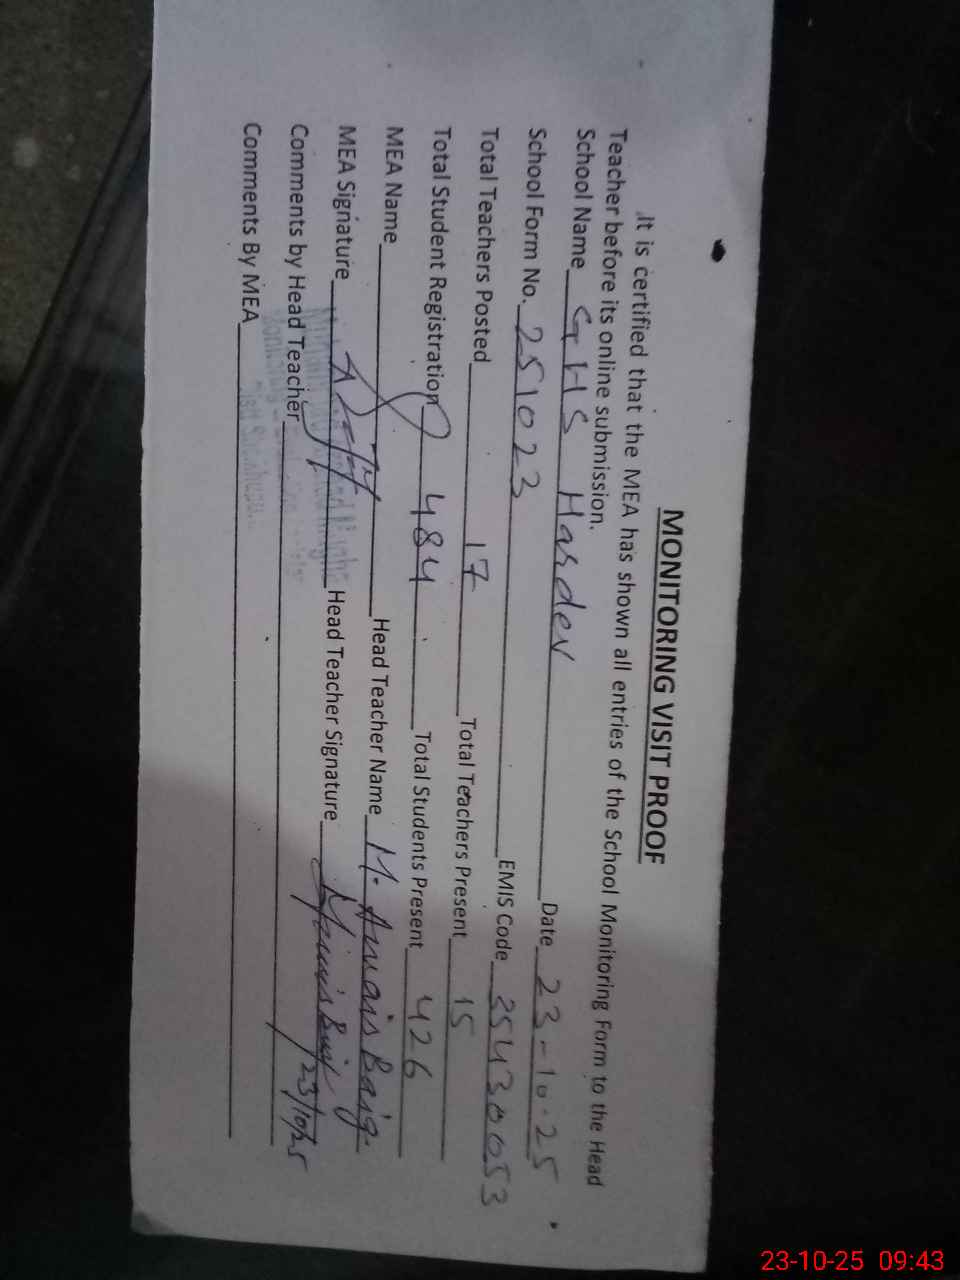 MONITORING VISIT PROOF
It is certified that the MEA has shown all entries of the School Monitoring Form to the Head
Teacher before its online submission.
School Name GHS Hardev Date 23-10-25
School Form No. 251023 EMIS Code 35430053
Total Teachers Posted 17 Total Teachers Present 15
Total Student Registration 484 Total Students Present 426
MEA Name Head Teacher Name M. Awais Baig
MEA Signature Head Teacher Signature
23/10/25
Comments by Head Teacher
Comments By MEA
23-10-25 09:43